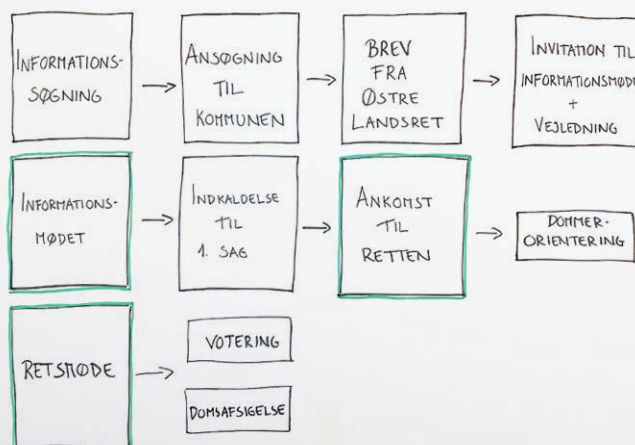 INFORMATIONS-
SØGNING
ANSØGNING
TIL
KOMMUNEN
BREV
FRA
ØSTRE
LANDSRET
INVITATION TIL
INFORMATIONSMØDE
+
VEJLEDNING
INFORMATIONS-
MØDET
INDKALDELSE
TIL
1. SAG
ANKOMST
TIL
RETTEN
DOMMER-
ORIENTERING
RETSMØDE
VOTERING
DOMSAFSIGELSE